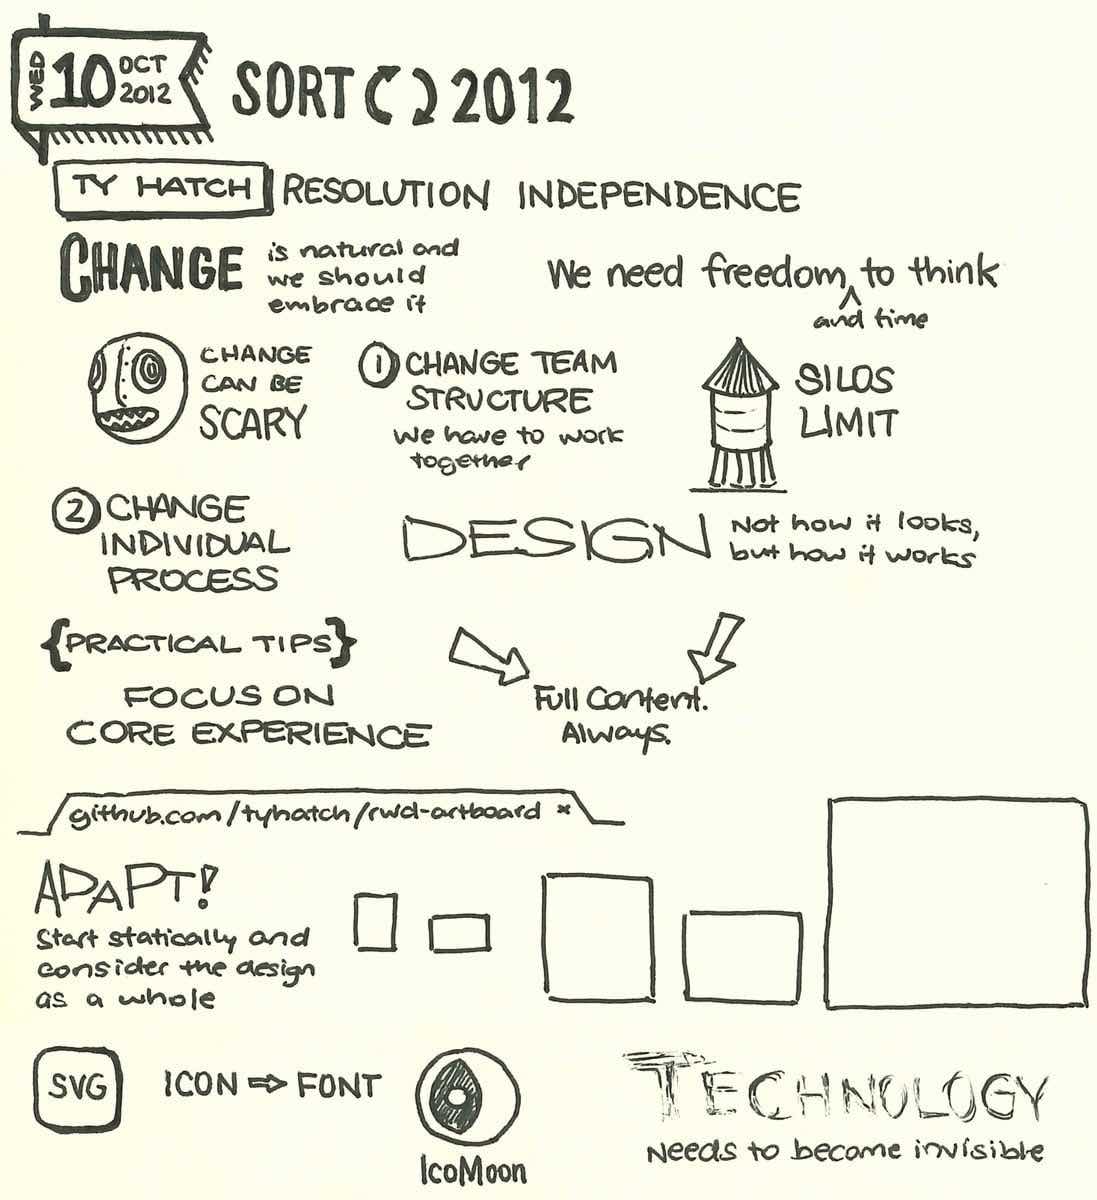 WED 10 OCT 2012
SORT 2012
TY HATCH RESOLUTION INDEPENDENCE
CHANGE is natural and
we should
embrace it
We need freedom to think
and time
CHANGE
CAN BE
SCARY
1 CHANGE TEAM
STRUCTURE
We have to work
together
SILOS
LIMIT
2 CHANGE
INDIVIDUAL
PROCESS
DESIGN Not how it looks,
but how it works
{PRACTICAL TIPS}
FOCUS ON
CORE EXPERIENCE
Full Content.
Always.
github.com/tyhatch/rwd-artboard x
ADAPT!
Start statically and
consider the design
as a whole
SVG
ICON ⇒ FONT
IcoMoon
TECHNOLOGY
Needs to become invisible